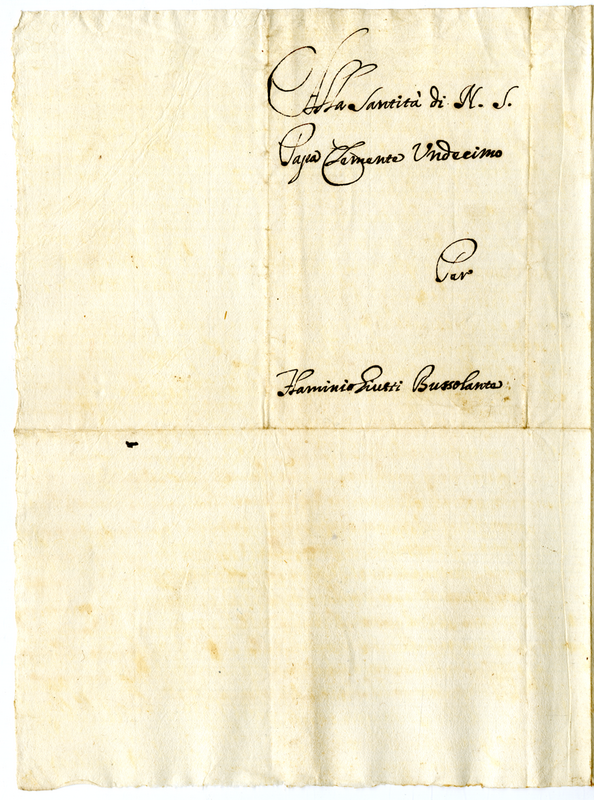 Alla Santità di N. S.
Papa Clemente Undecimo
Per
Flaminio Giusti Bussolante